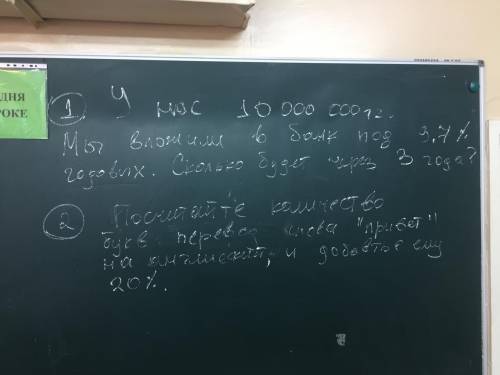 ДНЯ
РОКЕ
1 У нас 10 000 000 тг.
Мы вложили в банк под 3,7%
годовых. Сколько будет через 3 года?
2 Посчитайте количество
букв перевод слова "привет"
на английский, и добавьте ему
20%.